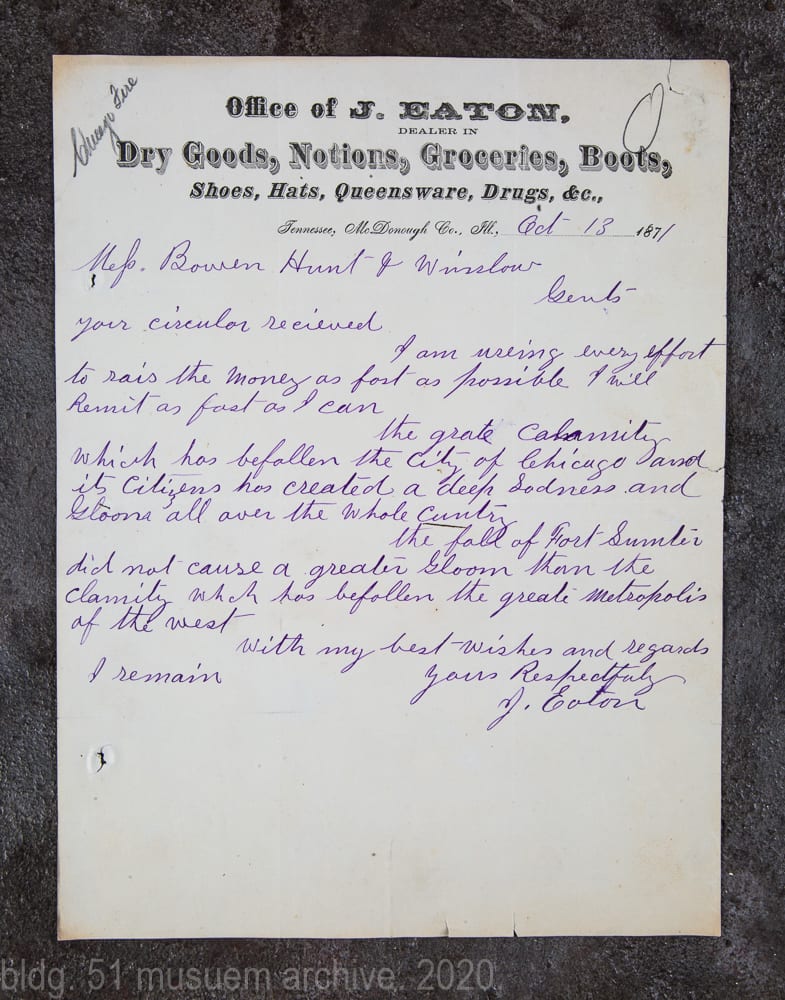 Chicago Fire
Office of J. EATON,
DEALER IN
Dry Goods, Notions, Groceries, Boots,
Shoes, Hats, Queensware, Drugs, &c.,
Tennessee, McDonough Co., Ill., Oct 13 1871
Mess. Bowen Hunt & Winslow
Gents
your circular recieved
I am useing every effort
to rais the money as fast as possible I will
Remit as fast as I can
the grate Calamity
which has befallen the City of Chicago and
its Citizens has created a deep Sadness and
Gloom all over the whole Cuntry
the fall of Fort Sumter
did not cause a greater Gloom than the
Clamity whch has befallen the greate Metropolis
of the west
with my best wishes and regards
I remain yours Respectfuly
J. Eaton
bldg. 51 musuem archive. 2020